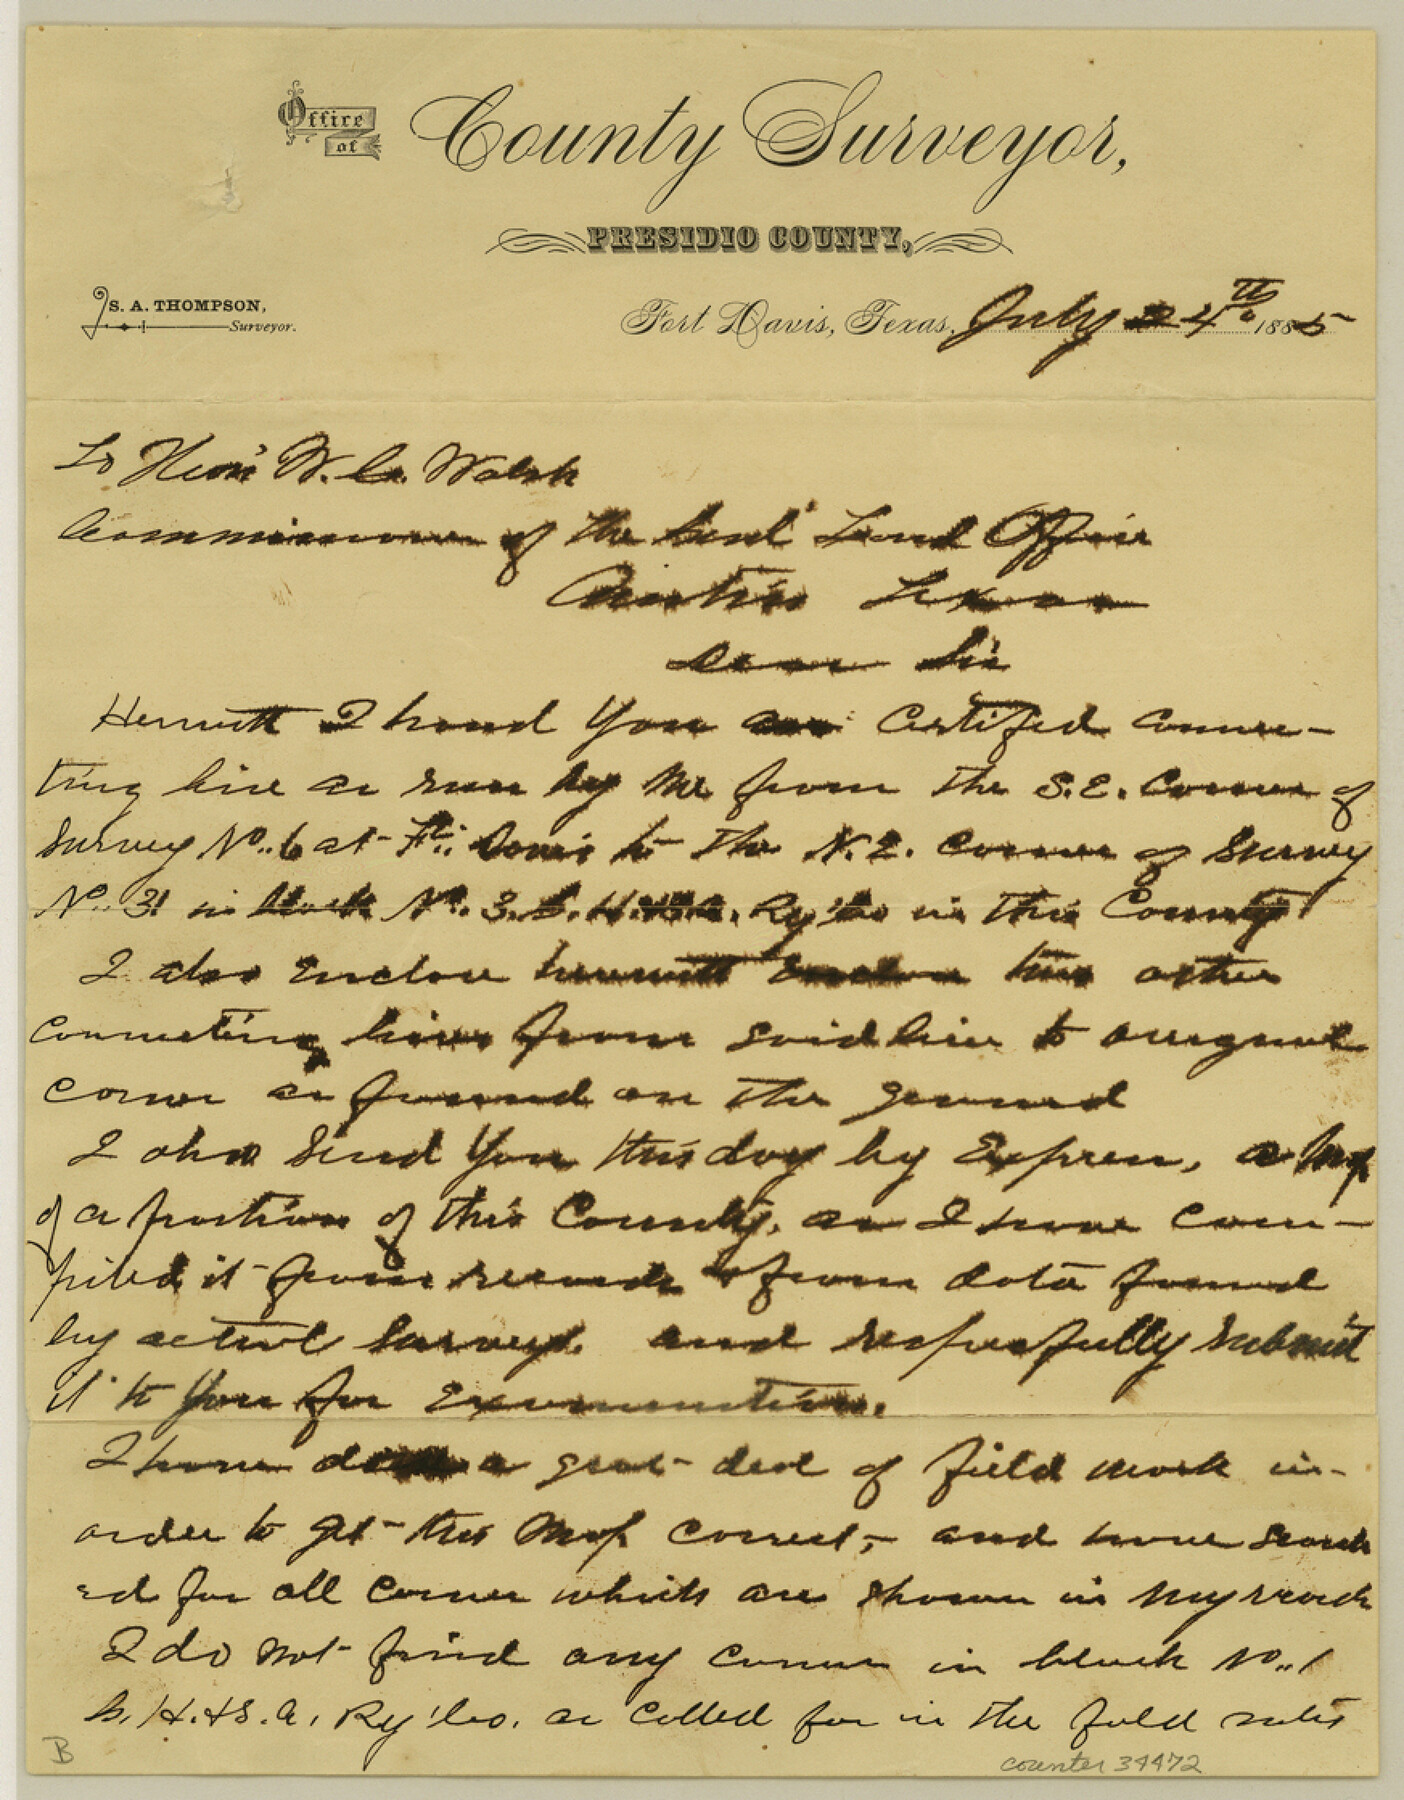 Office of County Surveyor,
PRESIDIO COUNTY,
S. A. THOMPSON,
Surveyor.
Fort Davis, Texas, July 24th, 1885
To Hon' W. C. Walsh
Commissioner of the Genl' Land Office
Austin Texas
Dear Sir
Herewith I hand You a certified connec-
ting line as run by me from the S.E. Corner of
Survey No. 6 at Ft. Davis to the N.E. Corner of Survey
No. 31 in block No. 3. G.H.&S.A. Ry'Co in this County
I also Enclose herewith Enclose two other
connecting lines from said line to original
corner as found on the ground
I also Send You this day by Express, a Map
of a portion of this County, as I have com-
piled it from records & from data found
by actual Surveys. and respectfully Submit
it to You for Examination.
I have done a great deal of field work in
order to get this Map correct, and have search
ed for all corner which are shown in my records
I do not find any corner in block No. 1
G. H. & S. A. Ry'Co. as called for in the field notes
B
counter 34472